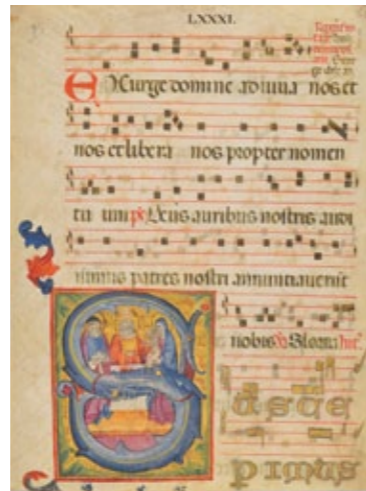 LXXXI.
Exurge domine adiuua nos et
nos et libera nos propter nomen
tu um ps Deus auribus nostris audi
uimus patres nostri annuntiauerunt
nobis Gloria
Susce
pimus